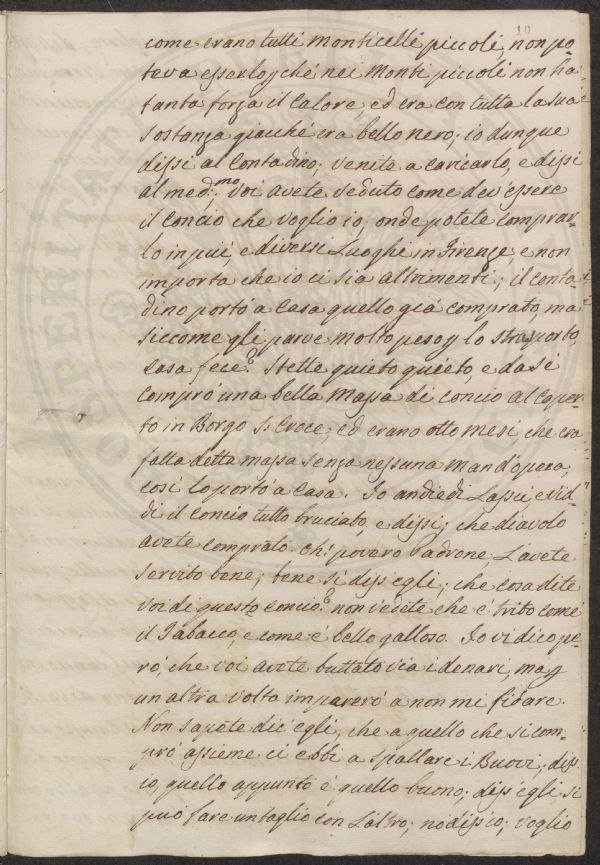 10
come erano tutti Monticelli piccoli, non po=
teva esserlo pché nei Monti piccoli non hà
tanta forza il Calore, ed era con tutta la sua
sostanza giacché era bello nero; io dunque
dissi al Contadino; venite a caricarlo, e dissi
al med.mo voi avete veduto come dev'essere
il Concio che voglio io, onde potete comprar=
lo in più, e diversi Luoghi in Firenze, e non
importa che io ci sia altrimenti; il Conta
dino portò a Casa quello già comprato, ma
siccome gli parve molto peso p lo strasporto,
cosa fece? Stette quieto quieto, e da sé
comprò una bella Massa di Concio al Coper=
to in Borgo S. Croce, ed erano otto mesi, che era
fatta detta massa senza nessuna mand'opera,
così lo portò a Casa. Io andiedi Lassù, e vid=
di il Concio tutto bruciato, e dissi, che diavolo
avete comprato. Oh! povero Padrone, L'avete
servito bene; bene sì diss'egli; che cosa dite
voi di questo concio? non vedete che è trito come
il Tabacco, e come è bello galloso. Io vi dico pe=
rò, che voi avete buttato via i denari, ma p
un altra volta imparerò a non mi fidare.
Non sapete dic'egli, che a quello che si com=
prò assieme ci ebbi a spallare i Buovi; diss'
io, quello appunto è quello buono; diss'egli si
può fare un taglio con L'altro; nò diss'io; voglio